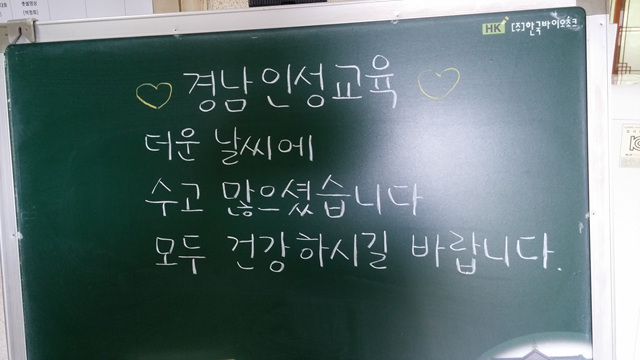 HK [주]한국바이오쵸크
♡ 경남인성교육 ♡
더운 날씨에
수고 많으셨습니다
모두 건강하시길 바랍니다.